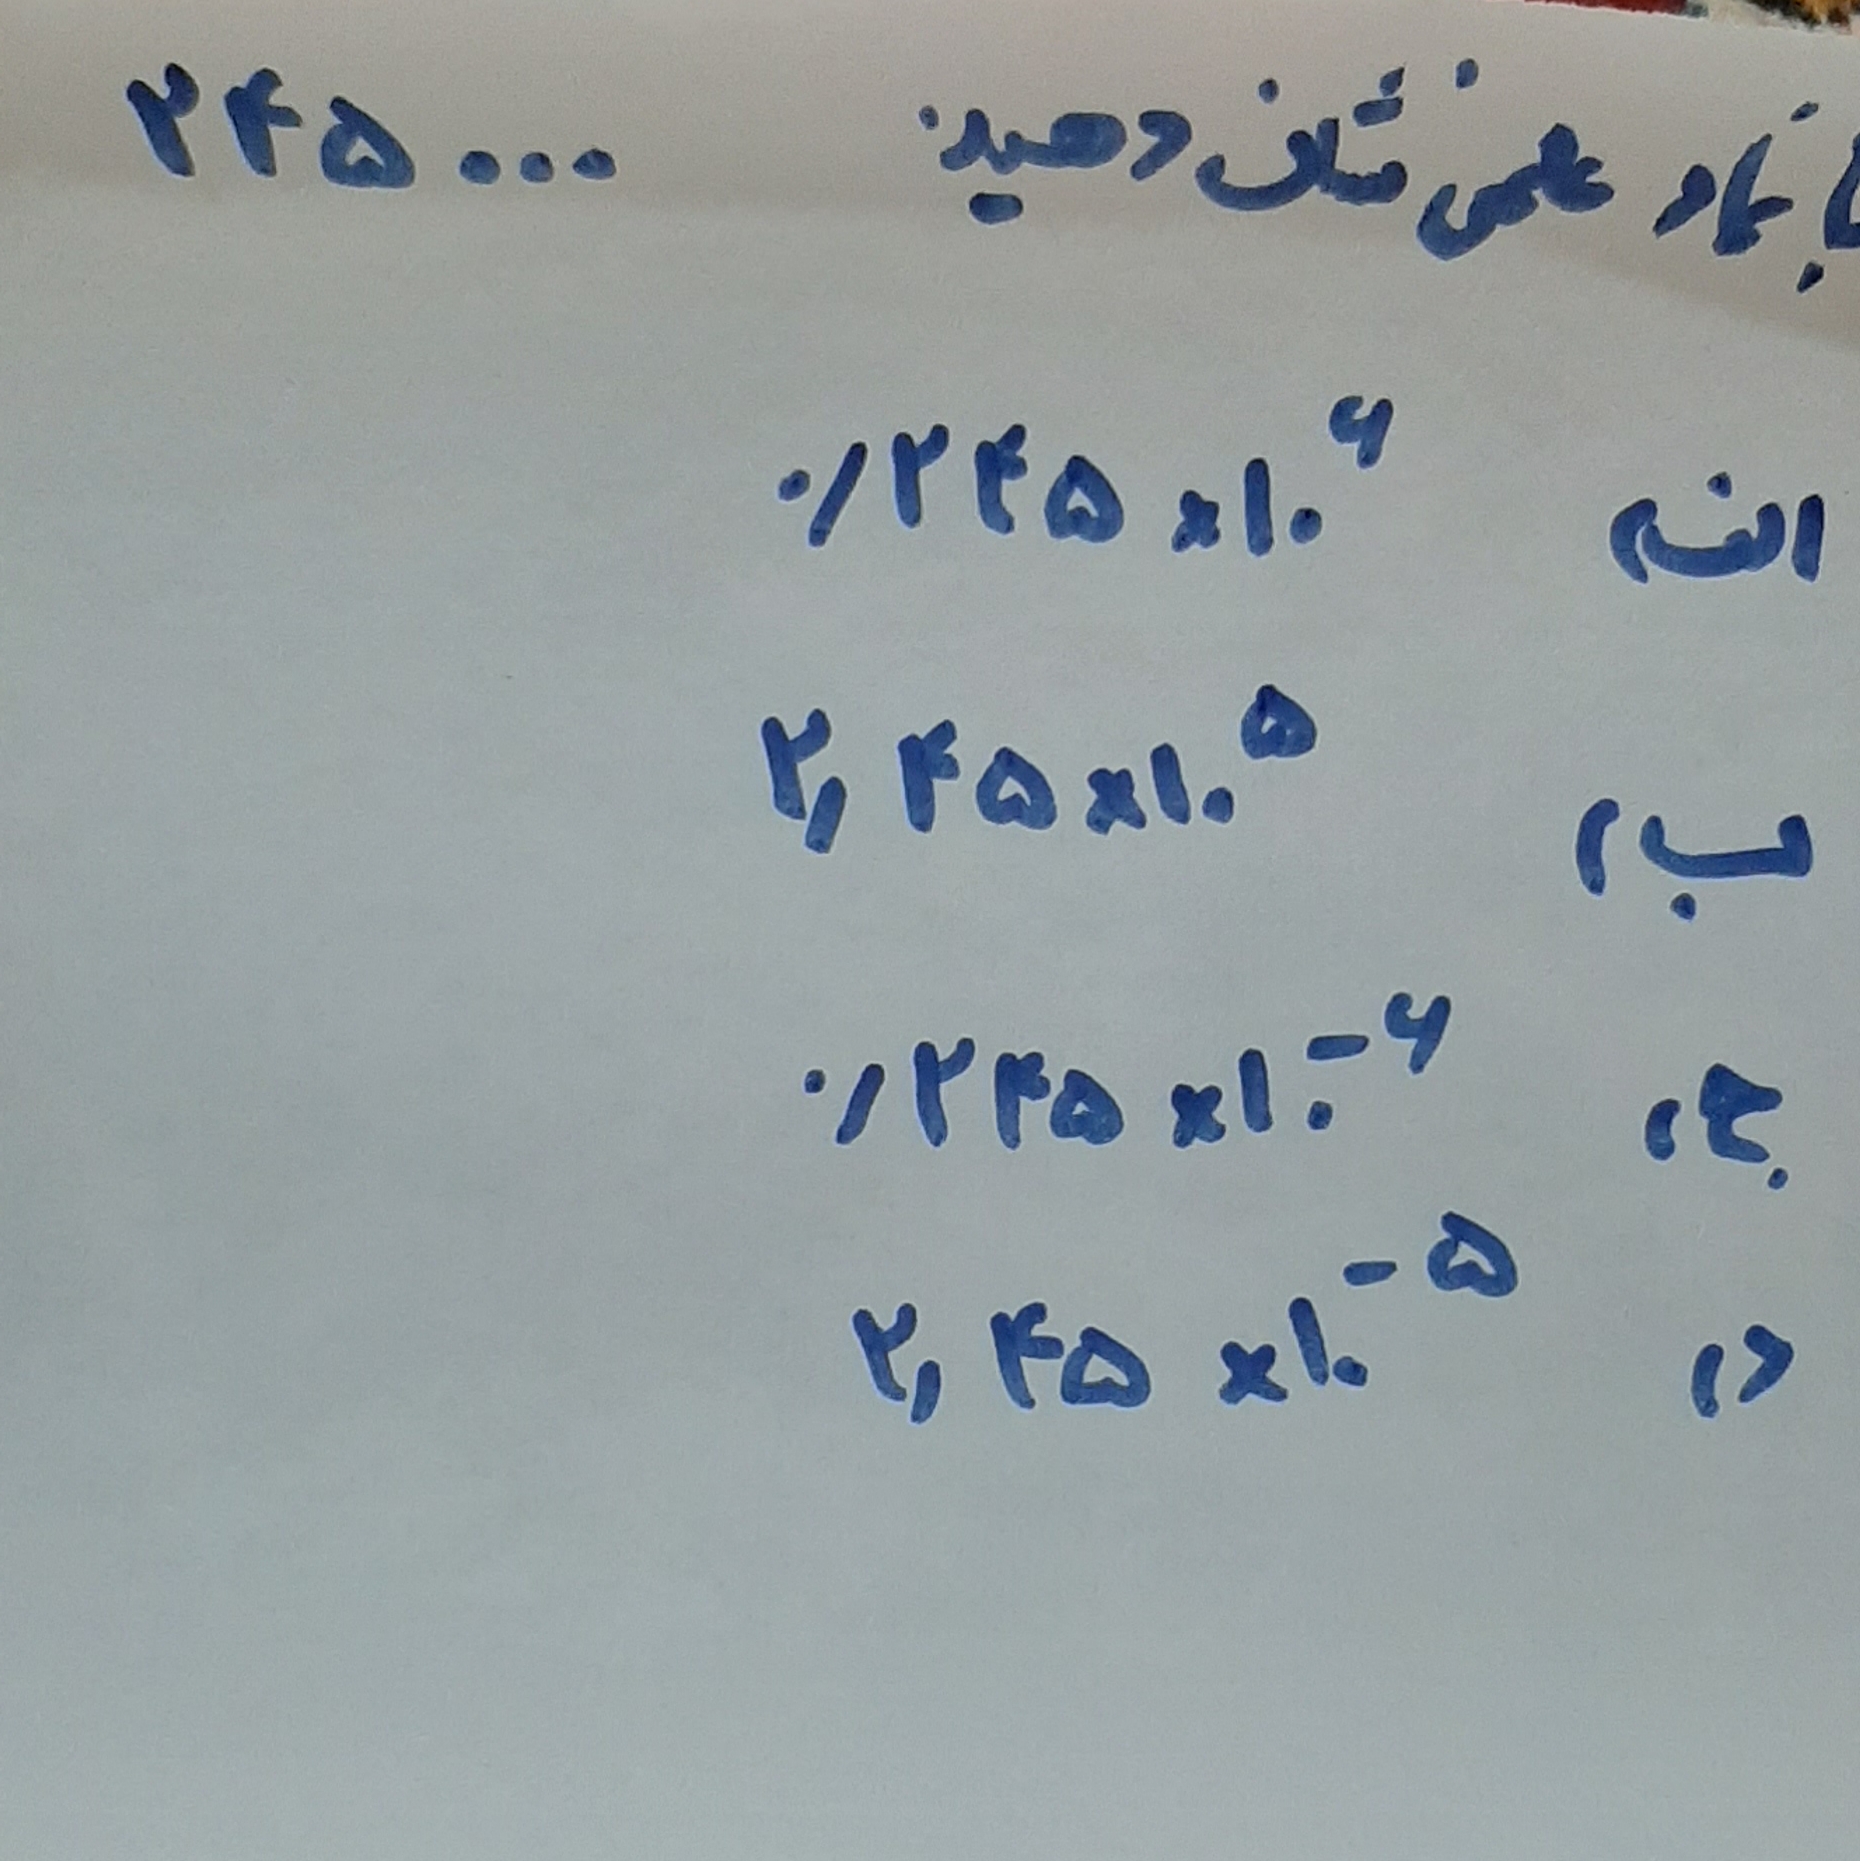 با نماد علمی نشان دهید ۲۴۵۰۰۰
الف) ۰/۲۴۵×۱۰^۶
ب) ۲,۴۵×۱۰^۵
ج) ۰/۲۴۵×۱۰^-۶
د) ۲,۴۵×۱۰^-۵